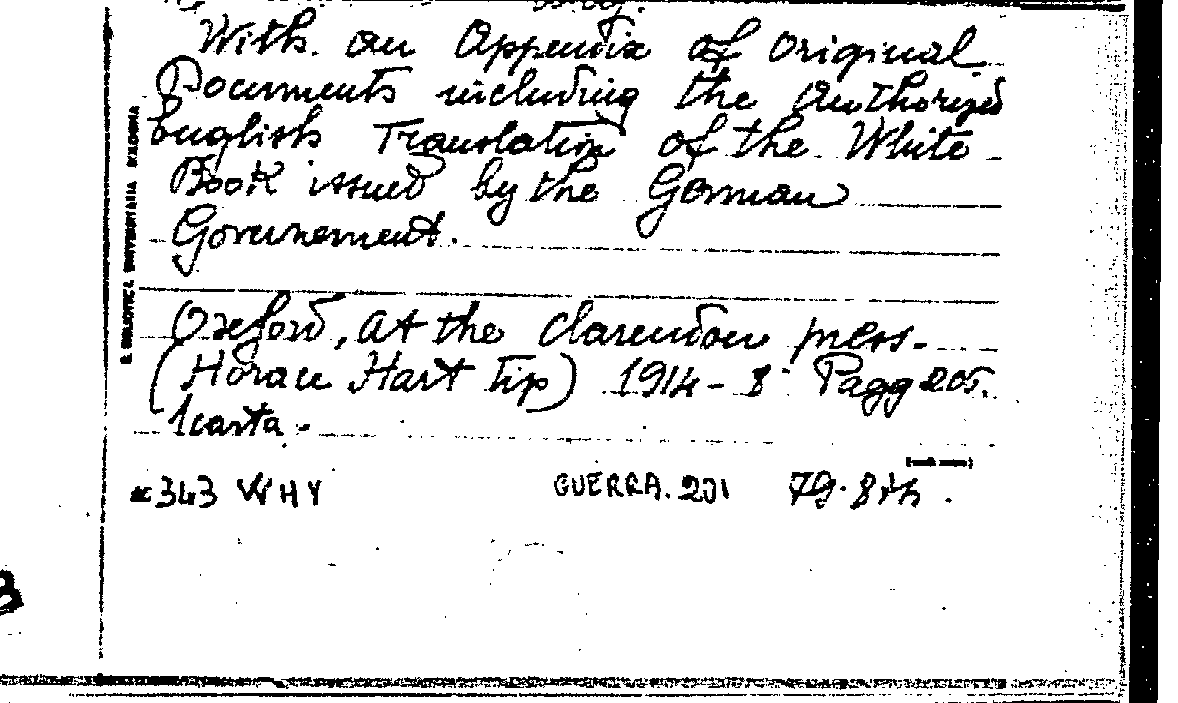 With. an Appendix of original
Documents including the Authorized
English Translation of the White
Book issued by the German
Governement.
Oxford, At the Clarendon press.
(Horace Hart Tip) 1914 - 8° Pagg 205.
1 carta.
343 WHY GUERRA. 201 79.
R. BIBLIOTECA UNIVERSITARIA BOLOGNA